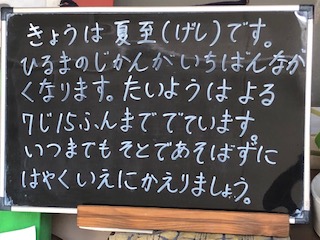 きょうは夏至(げし)です。
ひるまのじかんがいちばんなが
くなります。たいようはよる
7じ15ふんまででています。
いつまでもそとであそばずに
はやくいえにかえりましょう。